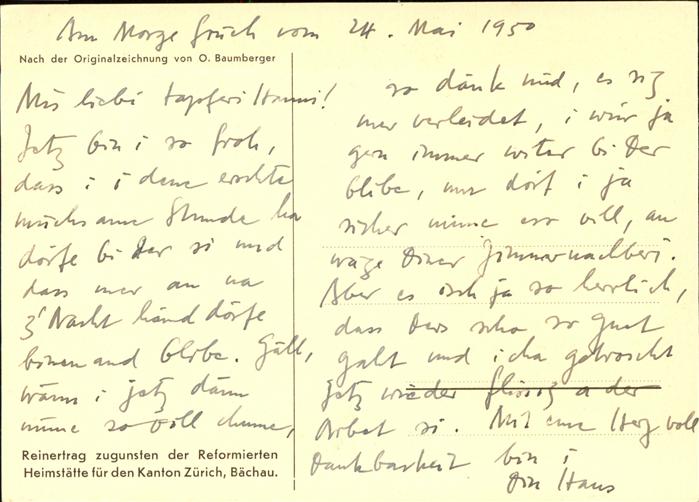 Am Morge früeh vom 24. Mai 1950
Nach der Originalzeichnung von O. Baumberger
Mis liebi tapferi Hanni!
Jetz bin i so froh,
dass i i dene erschte
müehsame Stunde ha
dörfe bi Der si und
dass mer au na
z'Nacht händ dörfe
binenand blibe. Gäll,
wänn i jetz dänn
nüme so vill chume,
Reinertrag zugunsten der Reformierten
Heimstätte für den Kanton Zürich, Bächau.
so dänk nüd, es seg
mer verleidet, i wür ja
gern immer witer bi Der
blibe, nur dörf i ja
sicher nüme eso vill, au
wäge Diner Zimmernachberi.
Aber es isch ja so herrlich,
dass Ders scho so guet
gaht und i cha getroscht
jetz wieder flissig a der
Arbet si. Mit eme Herz voll
Dankbarkeit bin i
Din Hans